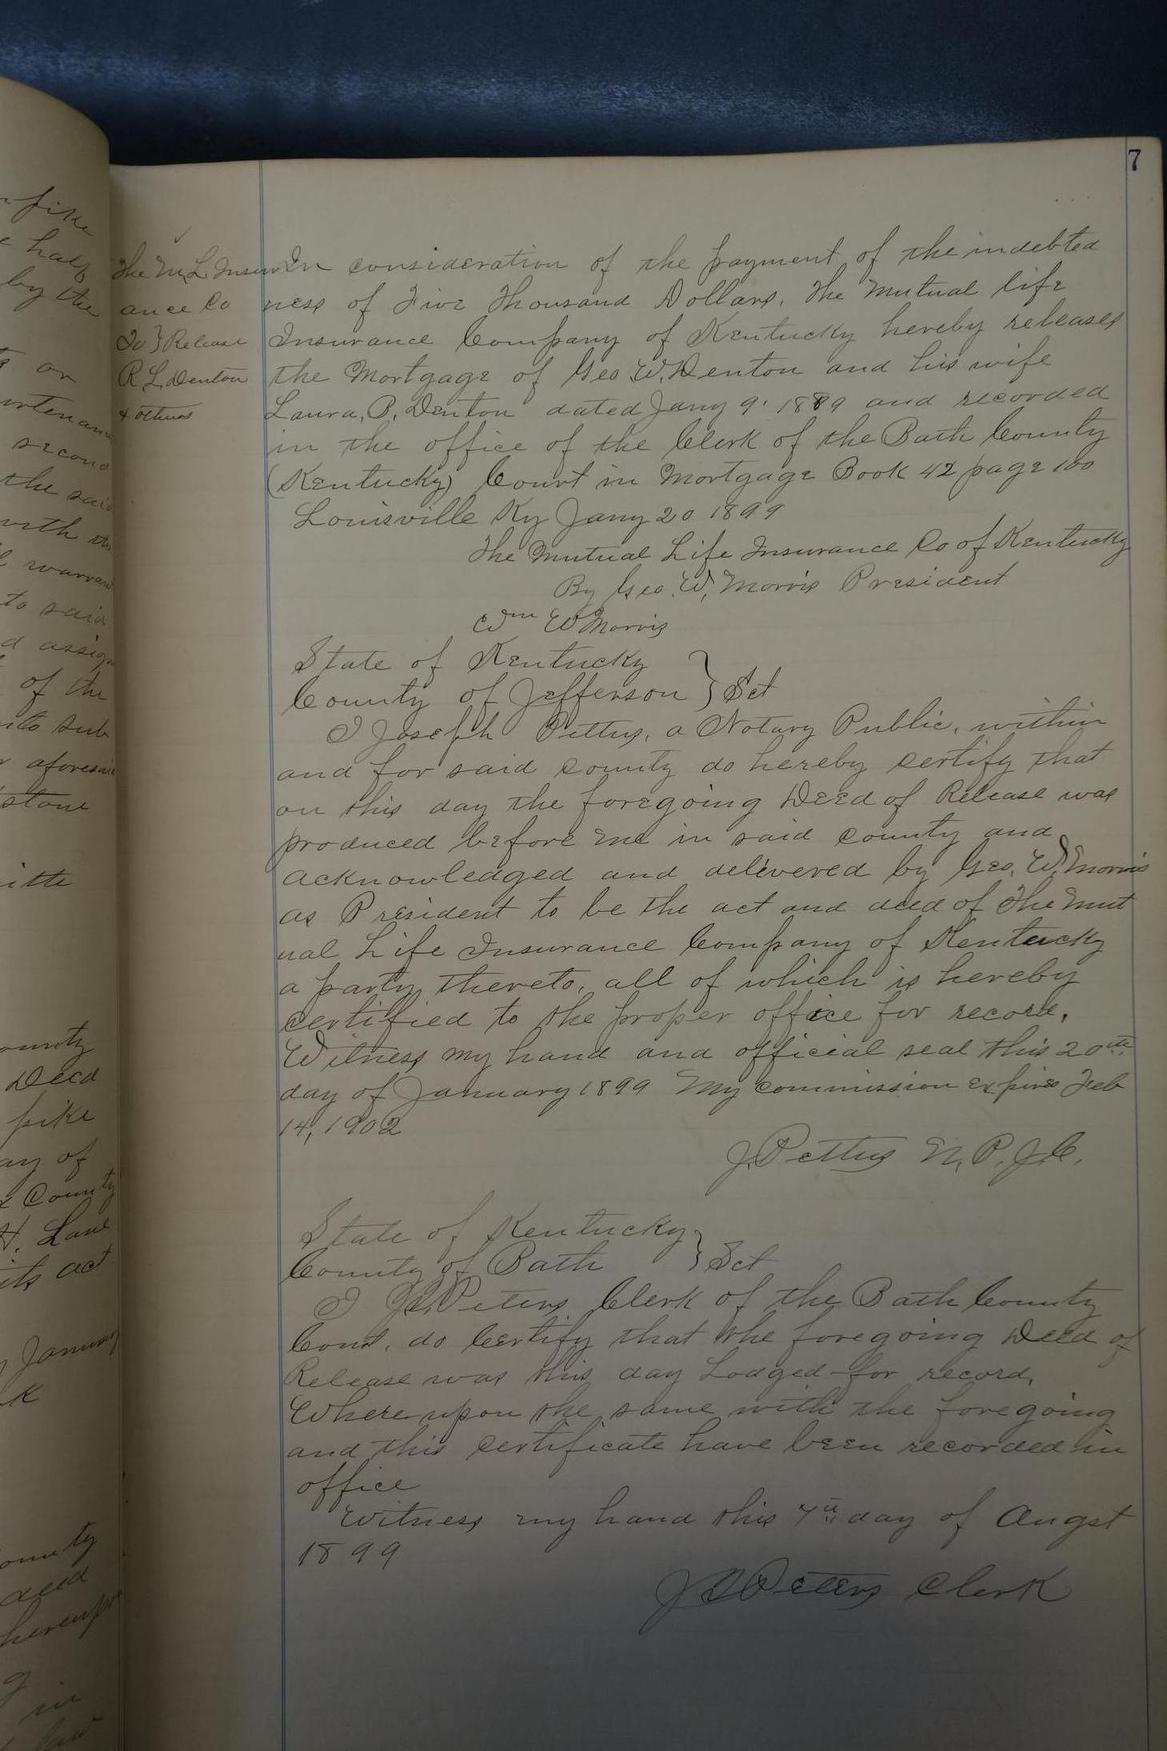 7
The M. L. Insur
ance Co
To } Release
R. L. Denton
& others
In consideration of the payment of the indebted
ness of Five Thousand Dollars, The Mutual life
Insurance Company of Kentucky hereby releases
the Mortgage of Geo W. Denton and his wife
Laura, B. Denton dated Jany 9. 1889 and recorded
in the office of the Clerk of the Bath County
(Kentucky) Court in Mortgage Book 42 page 100
Louisville Ky Jany 20 1899
The Mutual Life Insurance Co of Kentucky
By Geo. W. Morris President
Wm W Morris
State of Kentucky }
County of Jefferson } Sct
I Joseph Pettus, a Notary Public, within
and for said county do hereby certify that
on this day the foregoing Deed of Release was
produced before me in said county and
acknowledged and delivered by Geo. W. Morris
as President to be the act and deed of The Mut
ual Life Insurance Company of Kentucky
a party thereto, all of which is hereby
certified to the proper office for record.
Witness my hand and official seal this 20th
day of January 1899 My commission expires Feb
14, 1902
J. Pettus N. P. J. C.
State of Kentucky }
County of Bath } Sct
I Peters Clerk of the Bath County
Court, do Certify that the foregoing Deed of
Release was this day Lodged for record,
Whereupon the same with the foregoing
and this certificate have been recorded in
office
Witness my hand this 7th day of Augst
1899
Peters Clerk
fike
half
by the
or
second
the said
with the
warran
to said
assign
of the
its sub
aforesaid
County
Deed
pike
day of
County
H. Lane
its act
January
County
deed
in